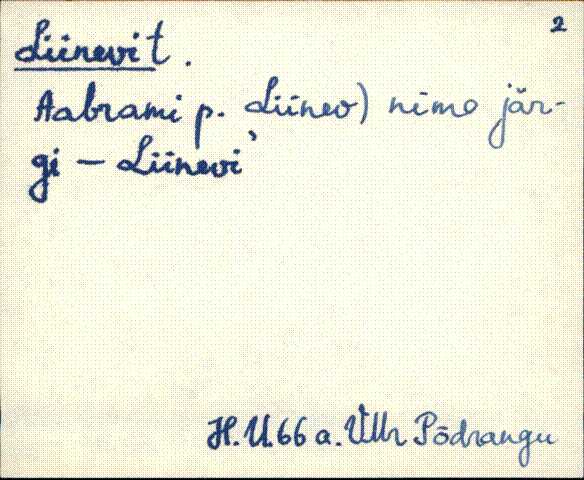 2
Liinevit.
Aabrami p. Liinev) nime jär-
gi — Liinevi'
H. U. 66 a. Üllr Põdrangu